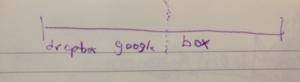 dropbox google box